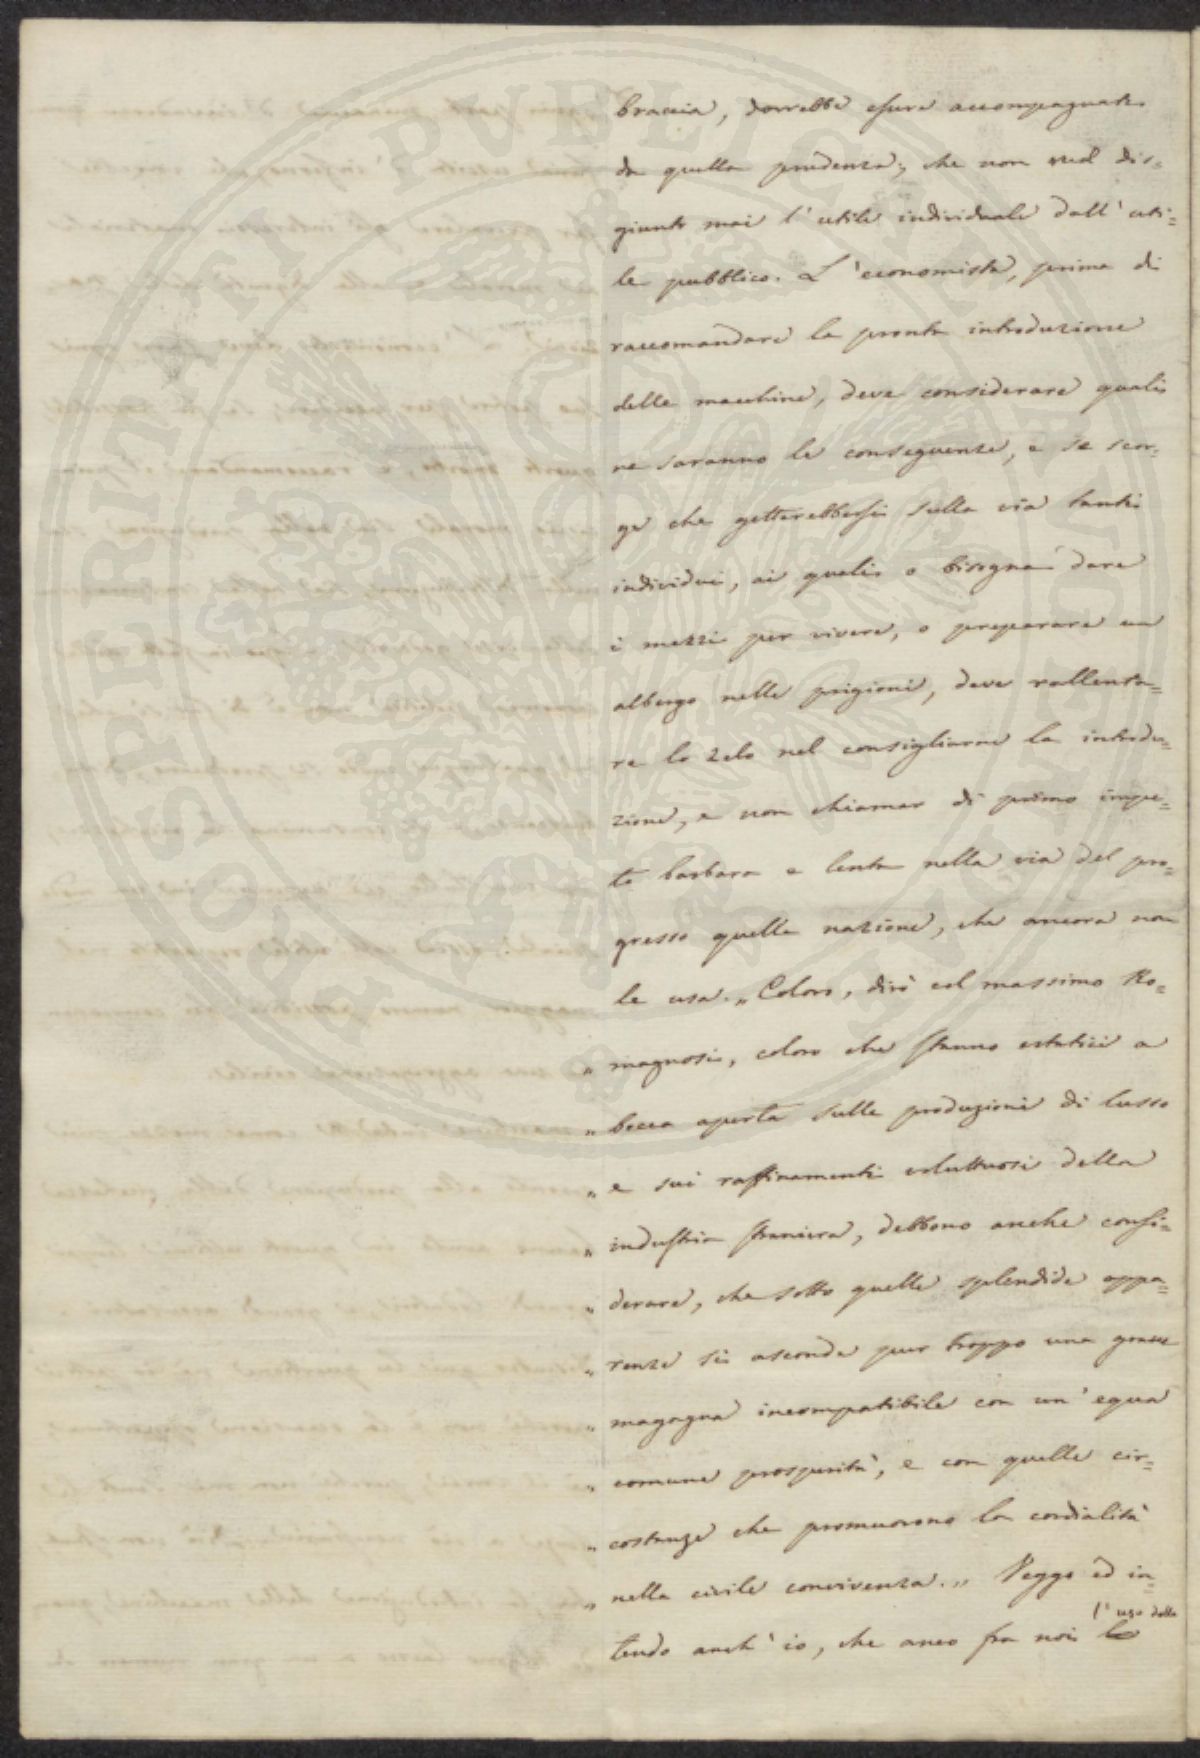 braccia, dovrebbe essere accompagnato
da quella prudenza, che non vuol dis-
giunto mai l'utile individuale dall'uti=
le pubblico. L'economista, prima di
raccomandare la pronta introduzione
delle macchine, deve considerare quali
ne saranno le conseguenze, e se scor-
ge che getterebbersi sulla via tanti
individui, ai quali o bisogna dare
i mezzi per vivere, o preparare un
albergo nelle prigioni, deve rallenta=
re lo zelo nel consigliarne la introdu=
zione, e non chiamar di primo impe=
to barbara e lenta nella via del pro=
gresso quella nazione, che ancora non
le usa. „ Coloro, dirò col massimo Ro=
„ magnosi, coloro che stanno estatici a
„ bocca aperta sulle produzioni di lusso
„ e sui raffinamenti voluttuosi della
„ industria straniera, debbono anche consi=
„ derare, che sotto quelle splendide appa=
„ renze si asconde pur troppo una grave
„ magagna incompatibile con un'equa
„ comune prosperità, e con quelle cir=
„ costanze che promuovono la cordialità
„ nella civile convivenza. „ Veggo ed in=
l'uso delle
tendo anch'io, che anco fra noi
PROSPERITATI PUBLICAE AUGENDAE